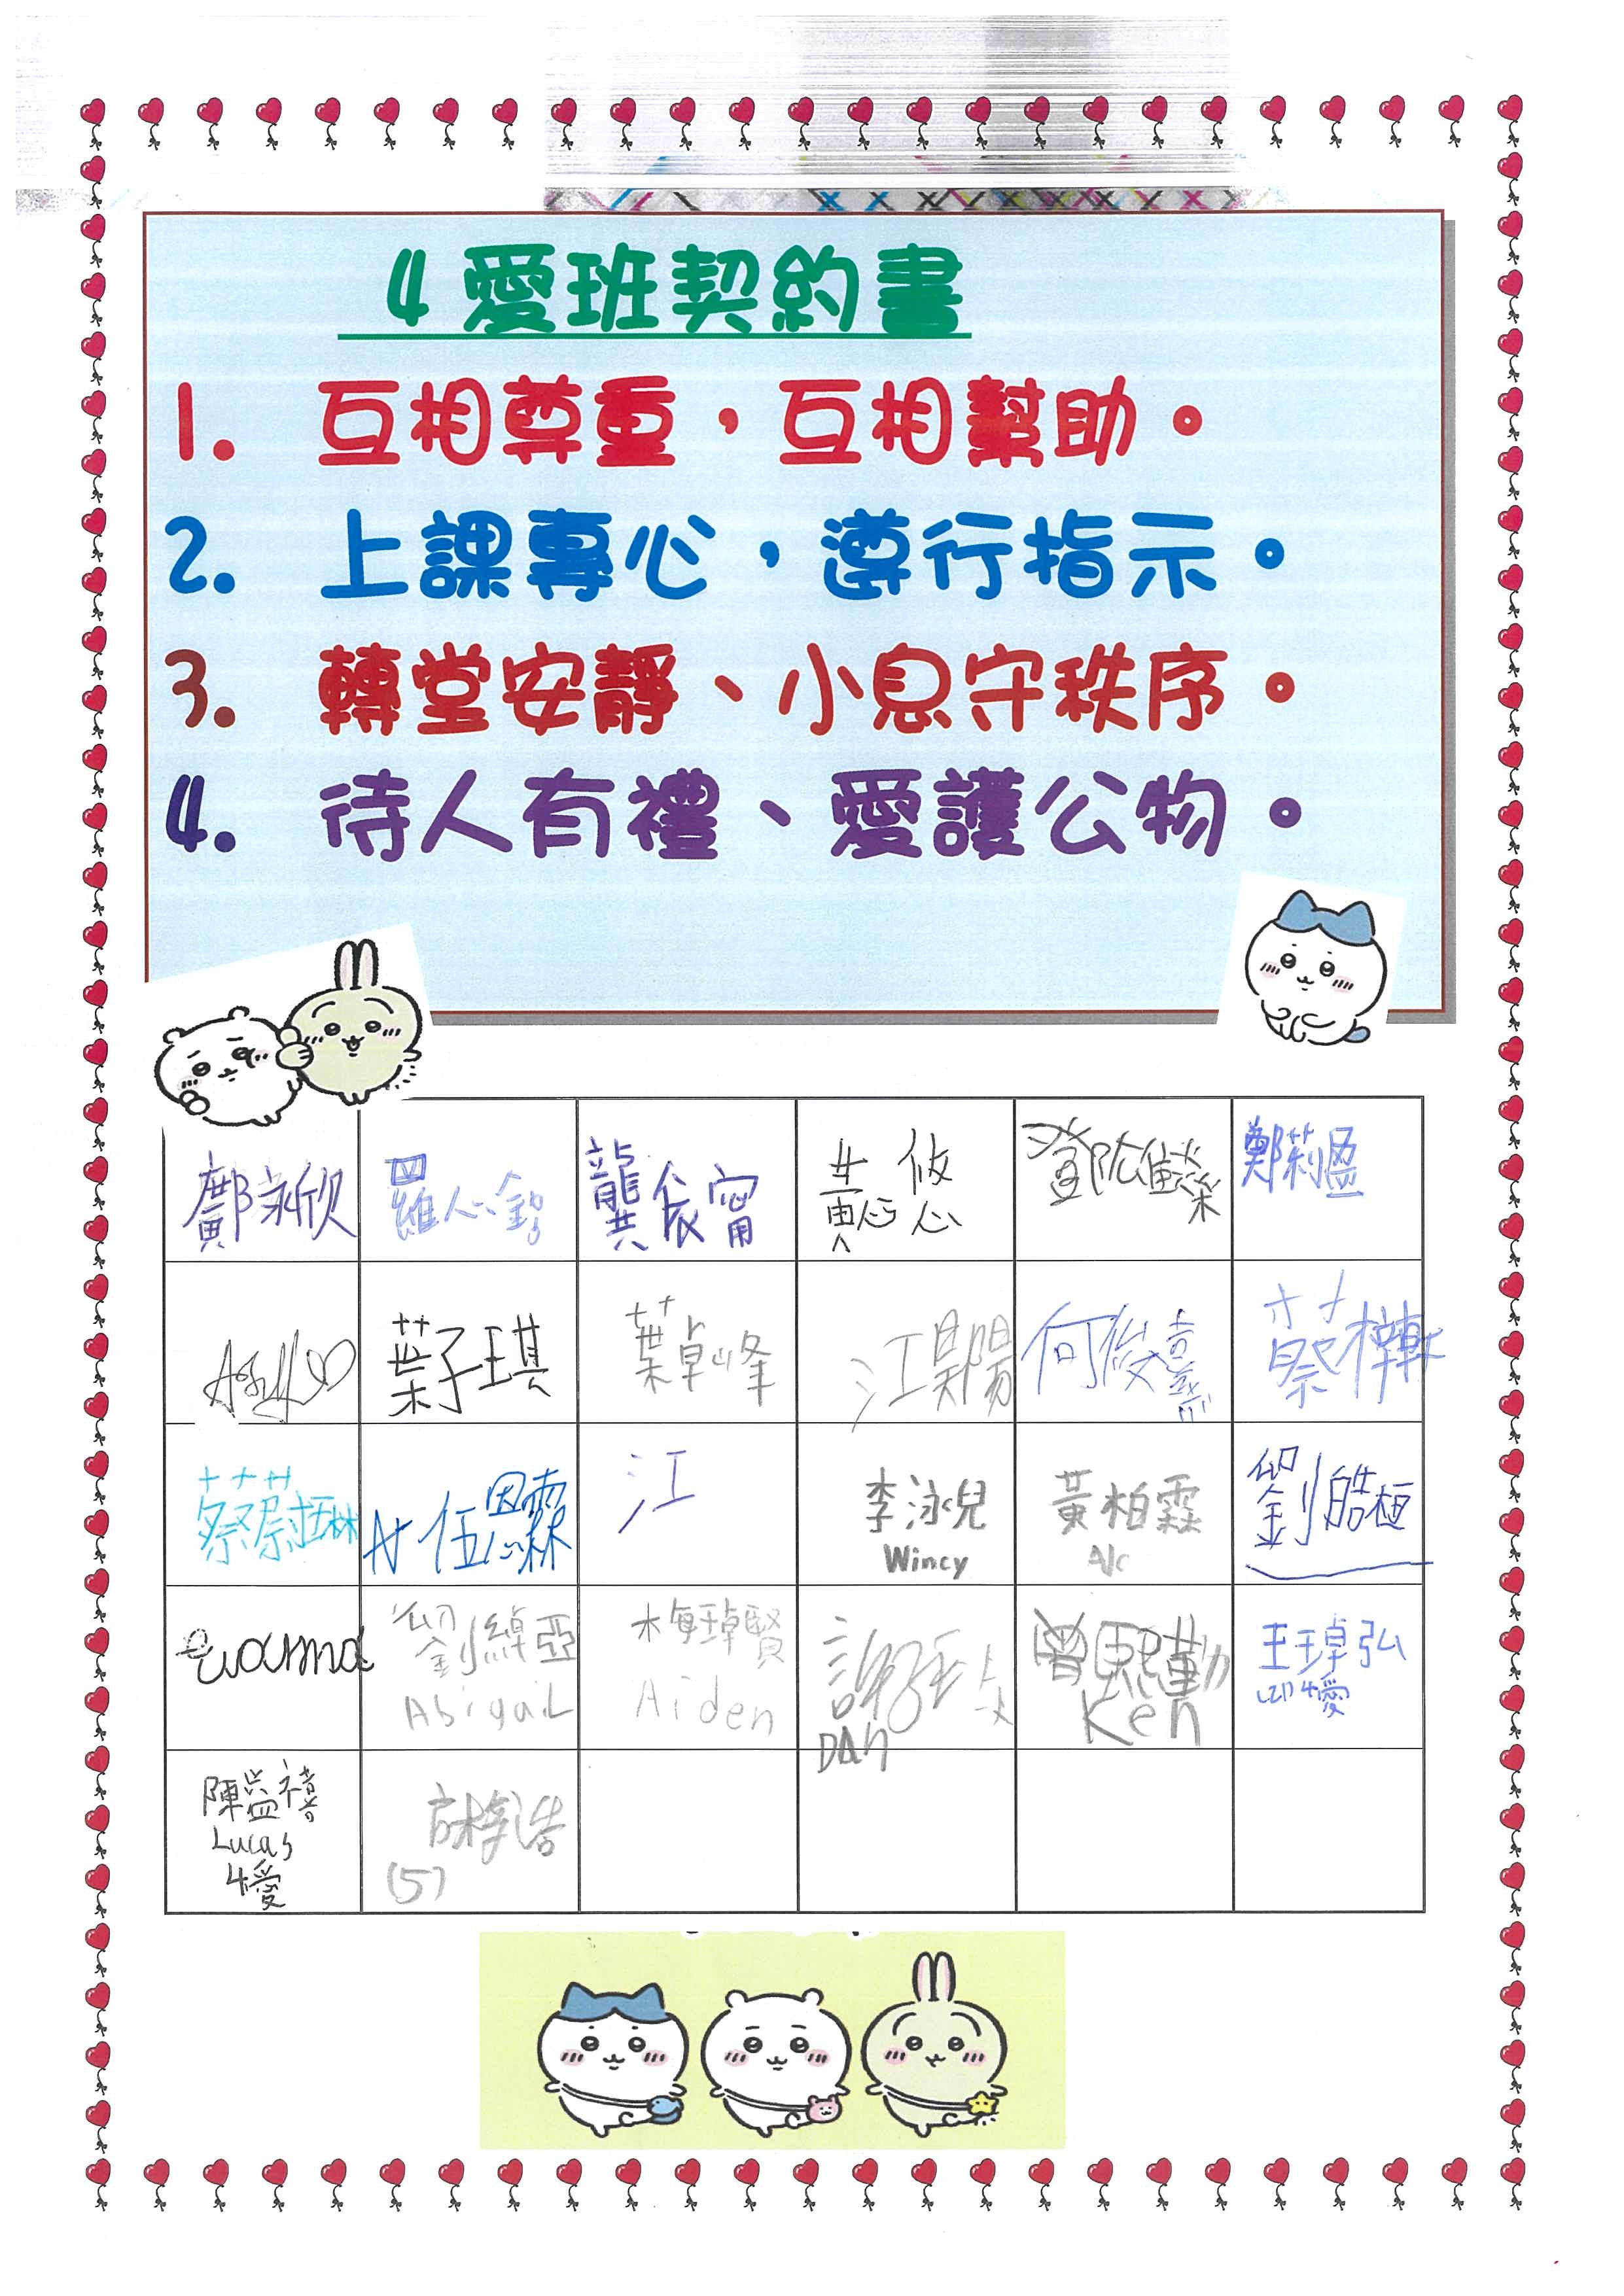 4 愛班契約書
1. 互相尊重，互相幫助。
2. 上課專心，遵行指示。
3. 轉堂安靜、小息守秩序。
4. 待人有禮、愛護公物。
鄺泳欣
羅心
龔宸甯
黃悠心
鄭莉盈
葉子琪
葉卓峰
江昊陽
何俊熹
蔡梓軒
蔡蔚琳
伍恩霖
江
李泳兒
Wincy
黃柏霖
劉皓桓
劉綽亞
Abigail
梅琸賢
Aiden
DAN
曾熙勤
Ken
王琸弘
4愛
陳益禧
Lucas
4愛
方梓浩
(5)